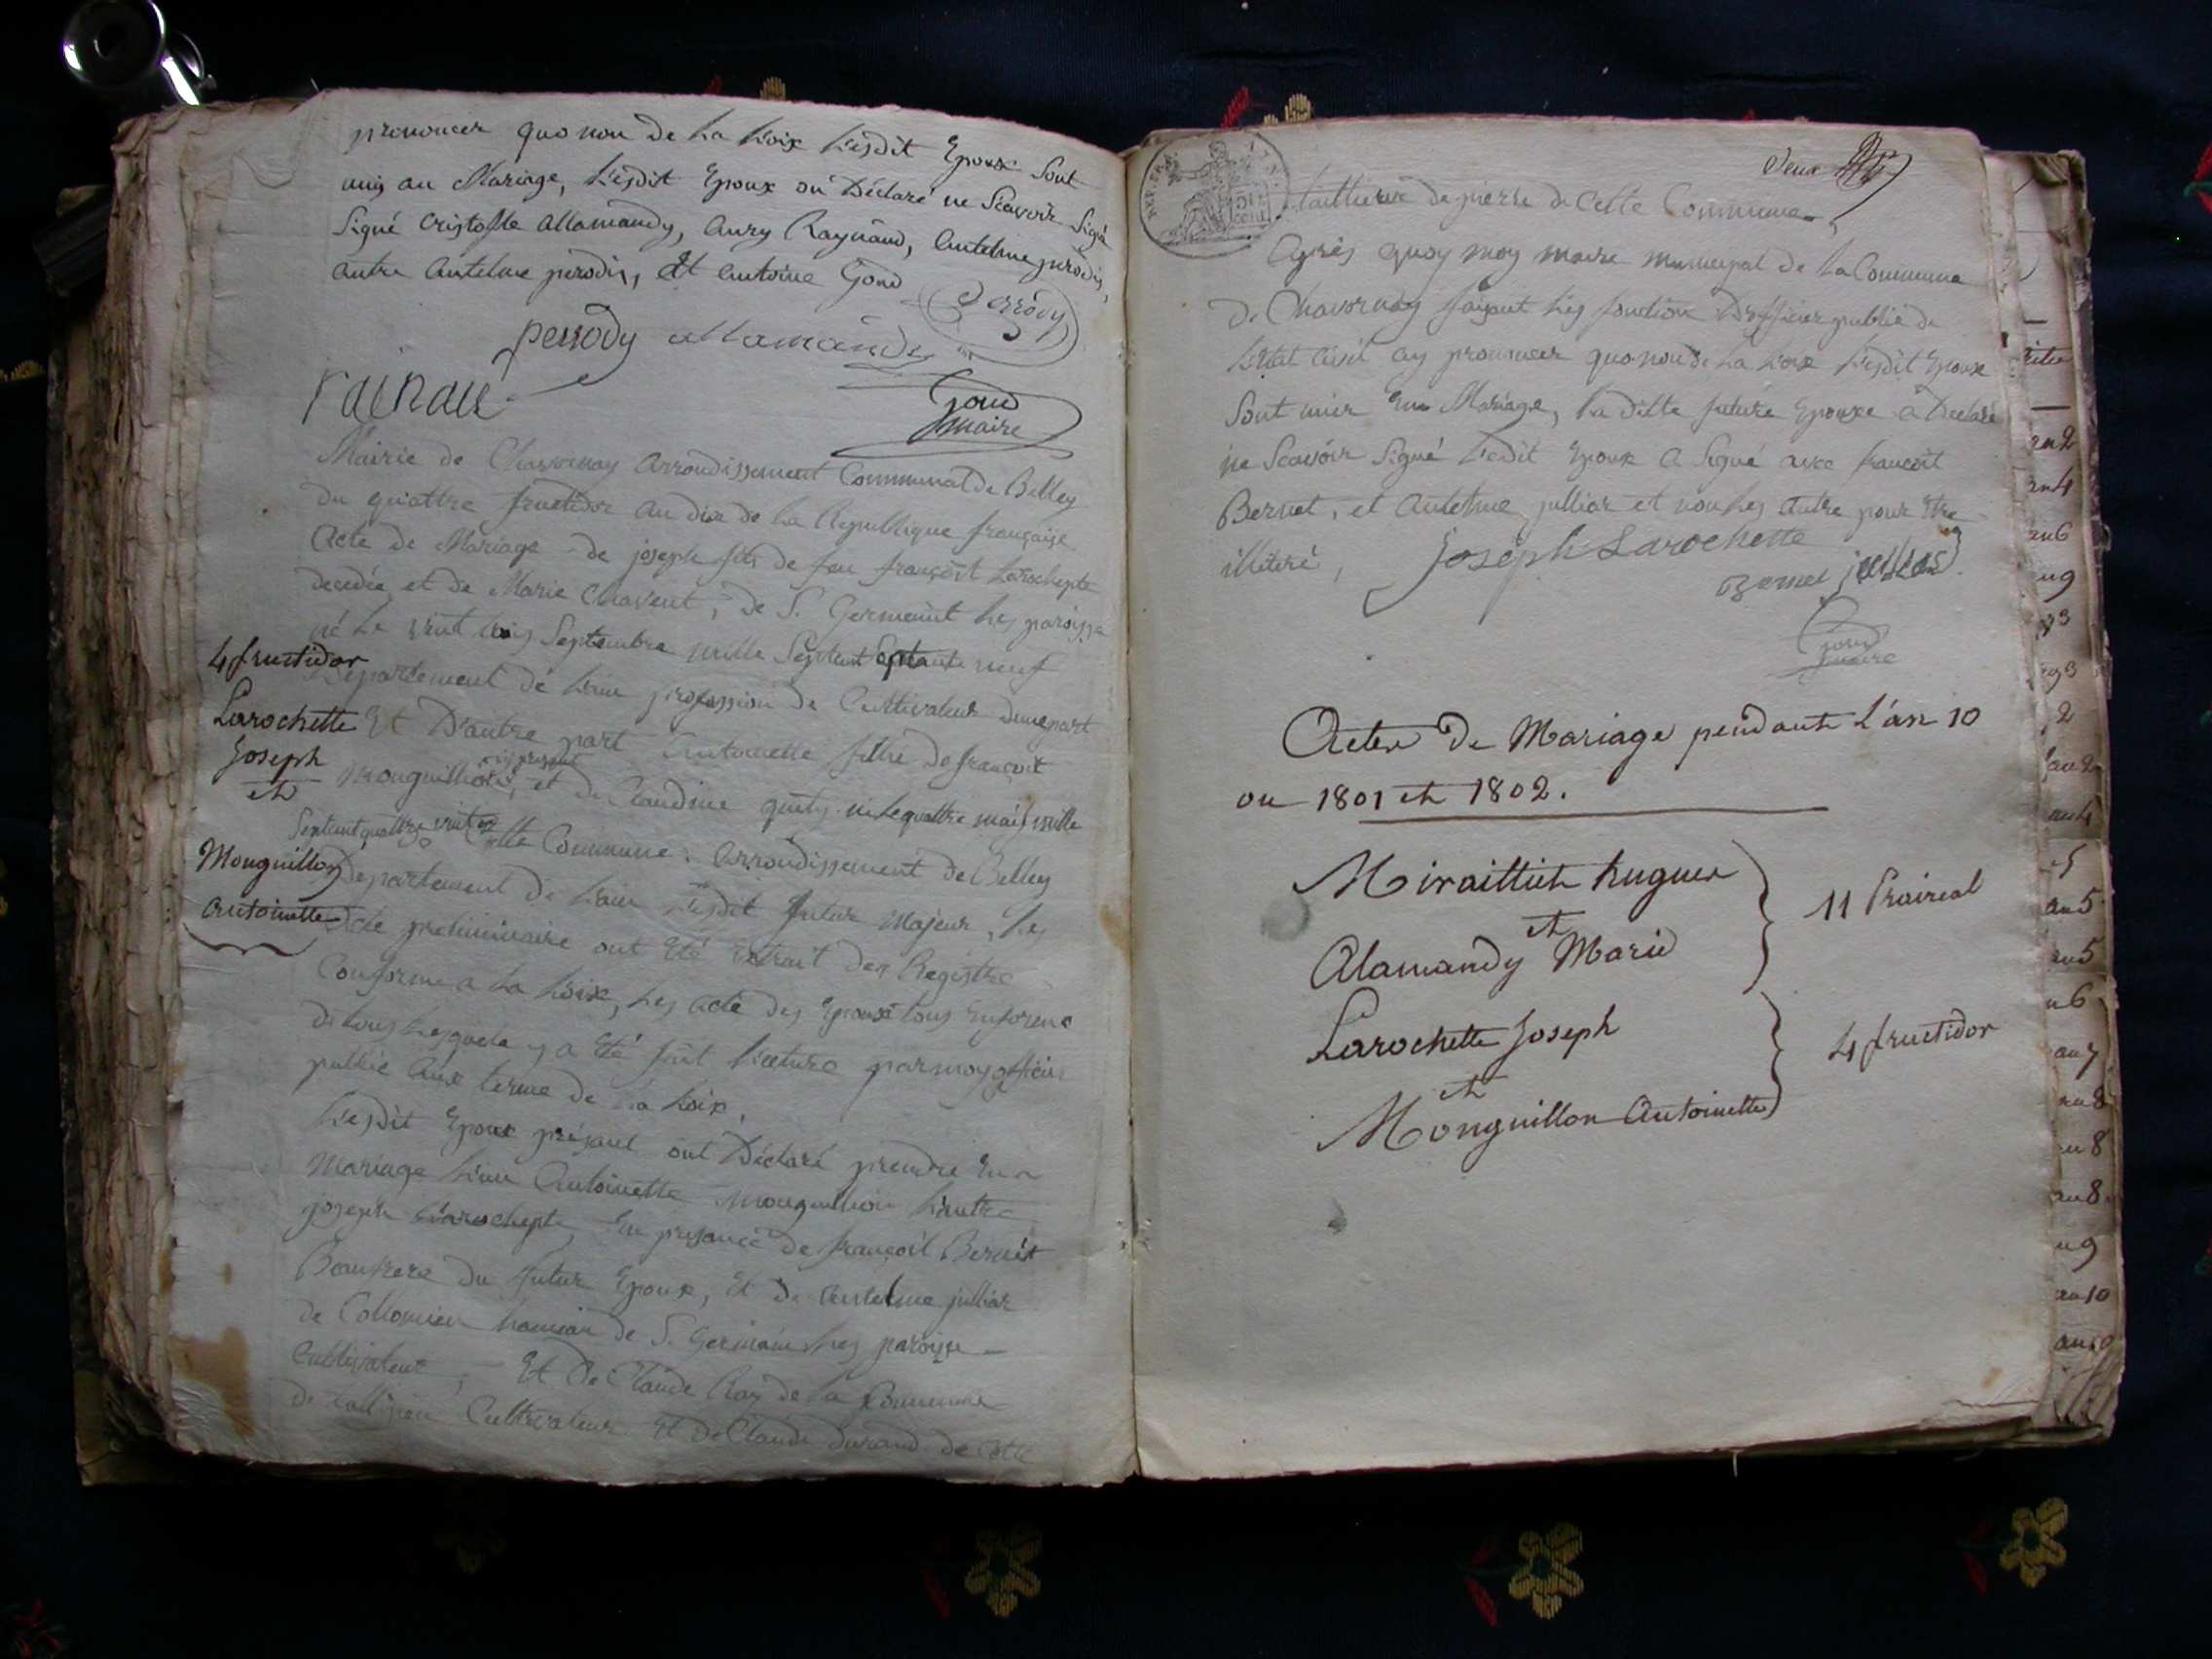 prononcer quo nom de la Loix Lesdit Epoux Sont
unis au Mariage, Lesdit Epoux on Déclaré ne Scavoir Signé
Signé Cristofle allamandy, aury Raynaud, Antelme perodis,
autre Antelme perodis, Et antoine Goud
perrody
perrody allamandy
rainaud
Goud
maire
Mairie de Chavornay arrondissement Communal de Belley
du quattre fructidor an dix de la Republique française
Acte de Mariage de joseph fils de feu françoit Larochepte
decedée et de Marie Chavent, de St. Germaint les paroisse
né Le vint trois Septembre mille Septcent Septante neuf
4 fructidor
Departement de L'ain profession de Cultivateur dunepart
Larochette
Joseph
et
Et D'autre part Antoinette fillie de françoit
Monguillion, icy present et de Claudine née le quattre mai mille
Septcent quattre vint Cette Commune. Arrondissement de Belley
Monguillon
Antoinette
Departement de L'ain Lesdit futur Majeur, Les
acte preliminaire ont été Extrait des Registre
Conforme a la Loix, Les acte des Epoux tous Enforme
de tous Lesquele y a été fait Lecture par moy officier
public aux terme de la Loix.
Lesdit Epoux présant ont Déclaré prendre En
Mariage L'un Antoinette Monguillion L'autre
joseph Larochepte En presance de françoit Bernet
Beaufrere du futur Epoux, Et de Antelme julliar
de Collomieu hameau de St. Germain les paroisse
Cultivateur, Et De Claude Ray de la Commune
de Cultivateur Et De Claude Durand de Cette
Deux
taillieur de pierre de Cette Commune
Après quoy moy maire municipal de la Commune
De Chavornay faisant les fonction D'officier public de
L'état Civil ay prononcer quo nom de la Loix Lesdit Epoux
Sont unier En Mariage, la ditte future Epouxe a Déclaré
ne Scavoir Signé Ledit Epoux a Signé avec françoit
Bernet, et Antelme julliar et non les autre pour être
illiteré,
Joseph Larochette
Bernet julliar
Goud
maire
Actes de Mariage pendant L'an 10
ou 1801 et 1802.
Miraillieh hugues
et
Alamandy Marie
11 Prairéal
Larochette Joseph
et
Monguillon Antoinette
4 fructidor
an 2
an 4
an 6
an 2
an 4
an 5
an 5
an 7
an 8
an 8
an 8
an 10